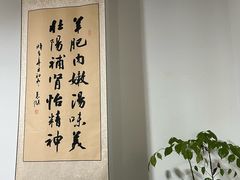 羊肥肉嫩湯味美
壯陽補腎怡精神